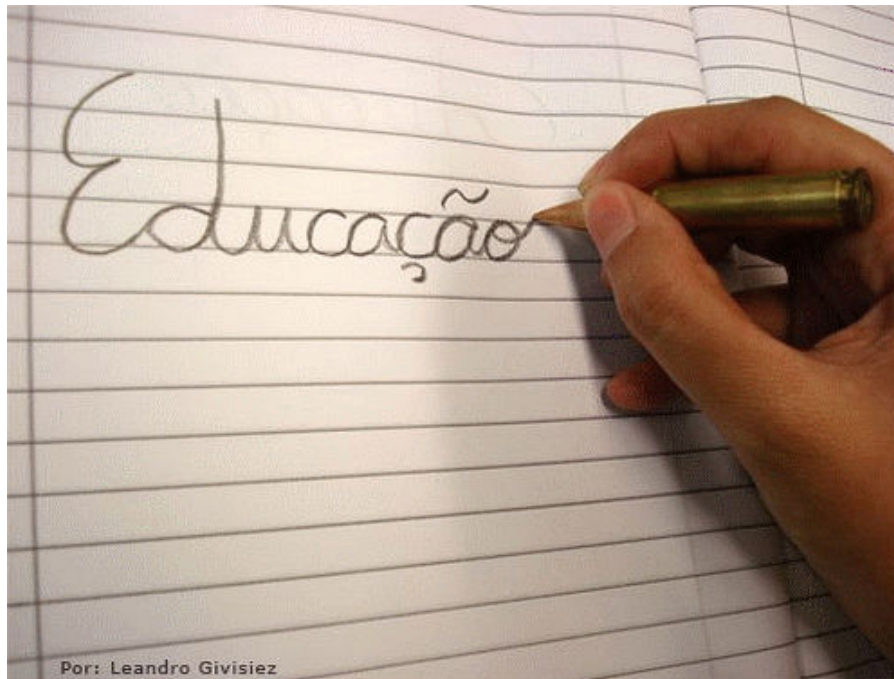 Educação
Por: Leandro Givisiez